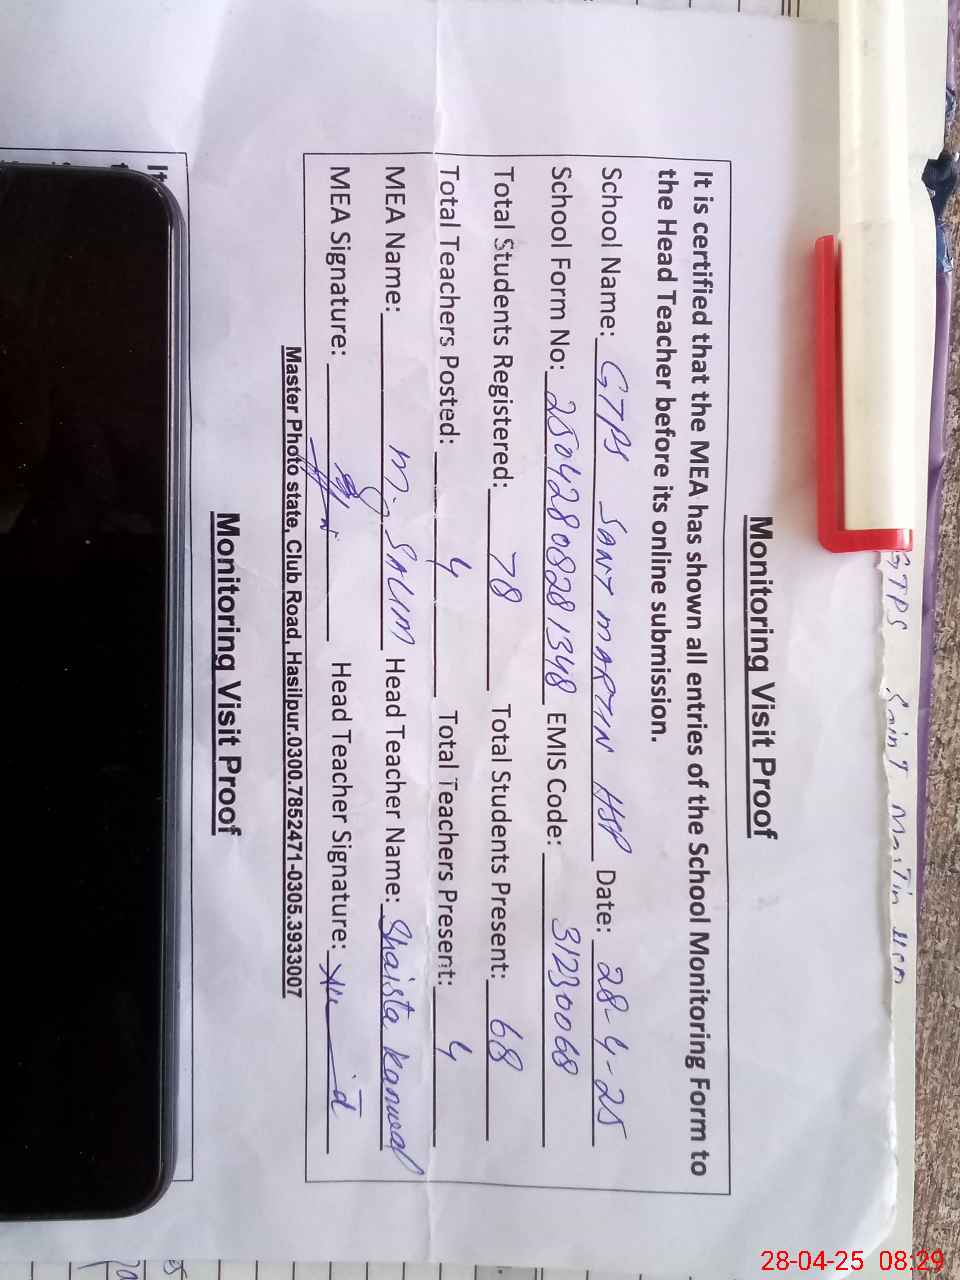 GTPS Saint Martin HSP
Monitoring Visit Proof
It is certified that the MEA has shown all entries of the School Monitoring Form to
the Head Teacher before its online submission.
School Name: GTPS SANT MARTIN HSP Date: 28-4-25
School Form No: 25042808281348 EMIS Code: 31230068
Total Students Registered: 78 Total Students Present: 68
Total Teachers Posted: 4 Total Teachers Present: 4
MEA Name: M. SALIM Head Teacher Name: Shaista Kanwal
MEA Signature: Head Teacher Signature:
Master Photo state, Club Road, Hasilpur.0300.7852471-0305.3933007
Monitoring Visit Proof
It
28-04-25 08:29